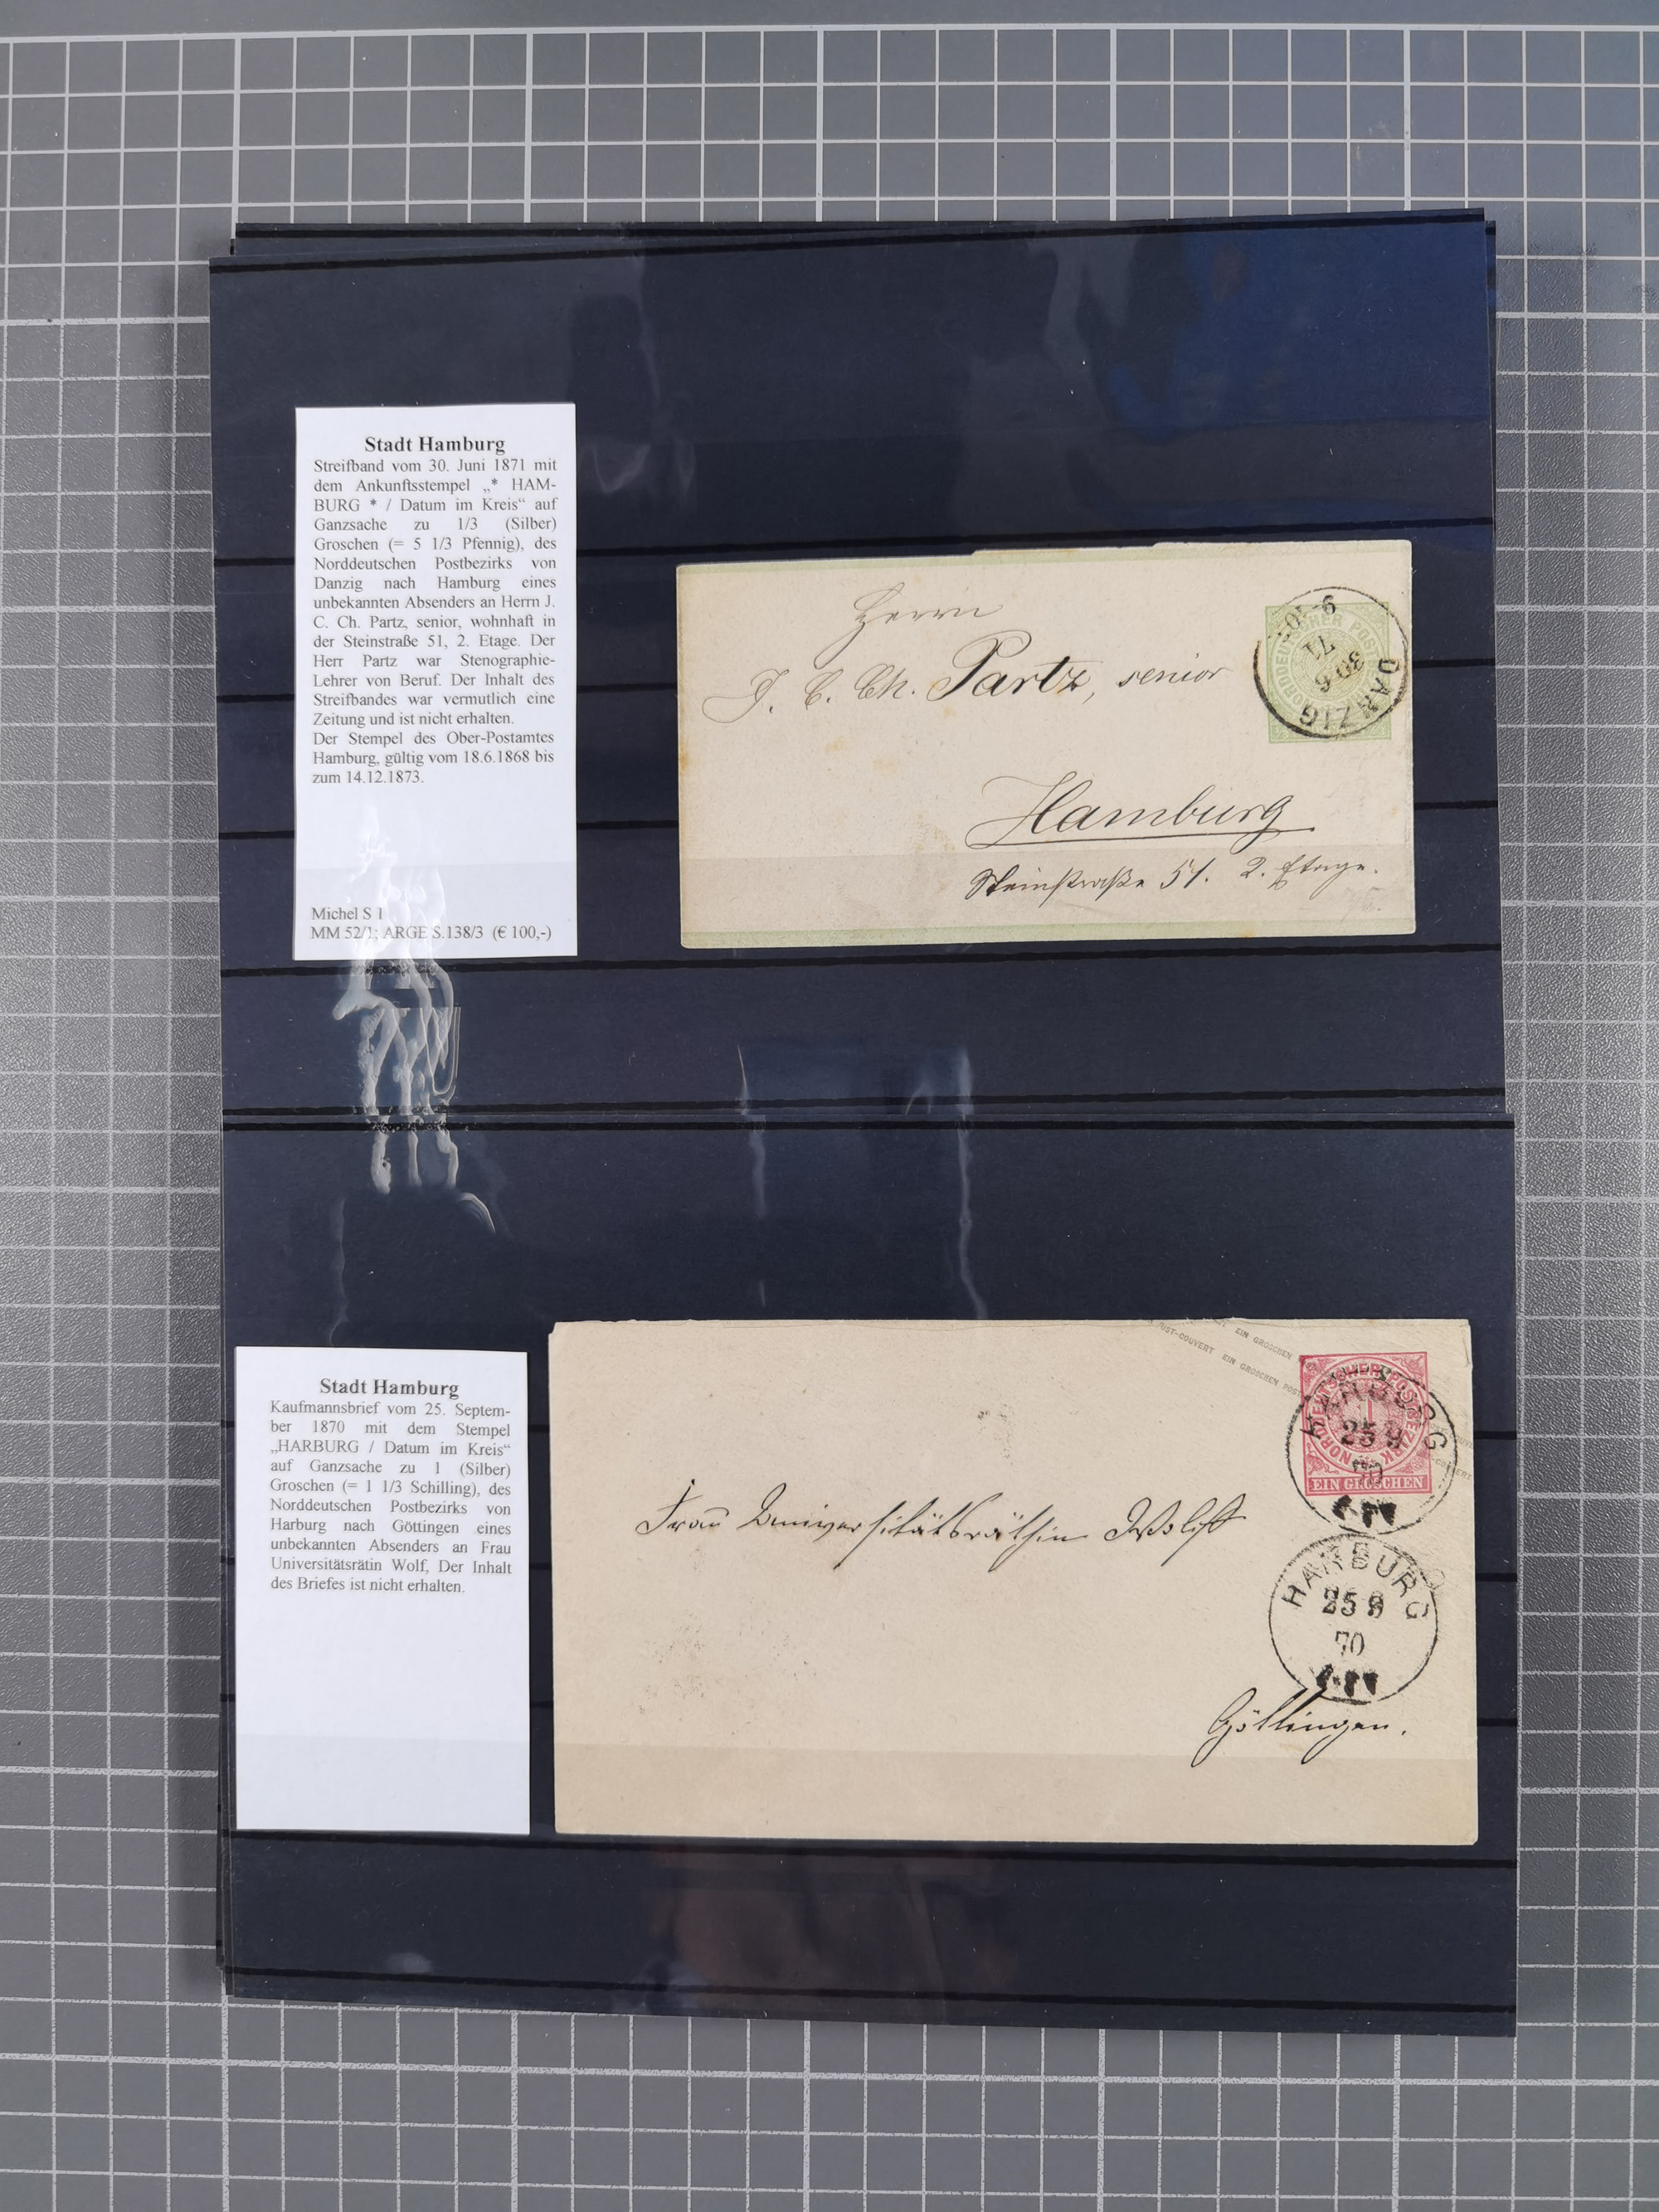 Stadt Hamburg
Streifband vom 30. Juni 1871 mit
dem Ankunftsstempel „* HAM-
BURG * / Datum im Kreis“ auf
Ganzsache zu 1/3 (Silber)
Groschen (= 5 1/3 Pfennig), des
Norddeutschen Postbezirks von
Danzig nach Hamburg eines
unbekannten Absenders an Herrn J.
C. Ch. Partz, senior, wohnhaft in
der Steinstraße 51, 2. Etage. Der
Herr Partz war Stenographie-
Lehrer von Beruf. Der Inhalt des
Streifbandes war vermutlich eine
Zeitung und ist nicht erhalten.
Der Stempel des Ober-Postamtes
Hamburg, gültig vom 18.6.1868 bis
zum 14.12.1873.
Michel S 1
MM 52/1; ARGE S.138/3 (€ 100,-)
Herrn
J. C. Ch. Partz, senior
Hamburg
Steinstraße 51. 2. Etage.
DANZIG
30 6
71
Stadt Hamburg
Kaufmannsbrief vom 25. Septem-
ber 1870 mit dem Stempel
„HARBURG / Datum im Kreis“
auf Ganzsache zu 1 (Silber)
Groschen (= 1 1/3 Schilling), des
Norddeutschen Postbezirks von
Harburg nach Göttingen eines
unbekannten Absenders an Frau
Universitätsrätin Wolf, Der Inhalt
des Briefes ist nicht erhalten.
EIN GROSCHEN
POST-COUVERT EIN GROSCHEN POST
NORDDEUTSCHER POSTBEZIRK
1
EIN GROSCHEN
HARBURG
25 9
70
HARBURG
25 9
70
Frau Universitätsräthin Wolff
Göttingen.